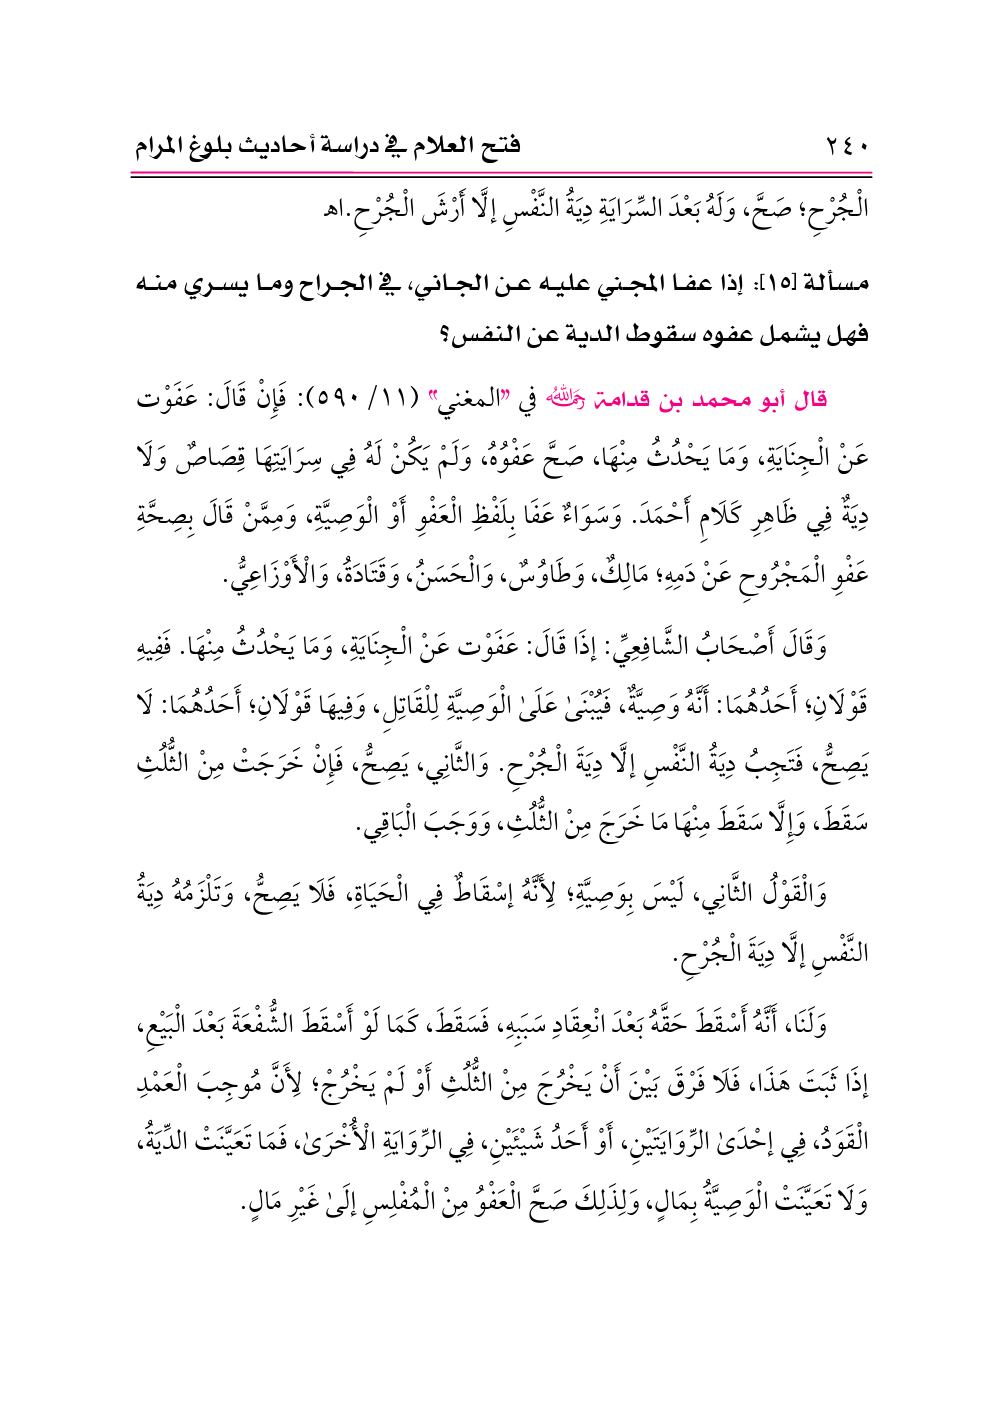 ٢٤٠ فتح العلام في دراسة أحاديث بلوغ المرام
الْجُرْحِ؛ صَحَّ، وَلَهُ بَعْدَ السِّرَايَةِ دِيَةُ النَّفْسِ إلَّا أَرْشَ الْجُرْحِ.اهـ
مسألة [١٥]: إذا عفا المجني عليه عن الجاني، في الجراح وما يسري منه
فهل يشمل عفوه سقوط الدية عن النفس؟
قال أبو محمد بن قدامة رحمه الله في "المغني" (١١/ ٥٩٠): فَإِنْ قَالَ: عَفَوْت
عَنْ الْجِنَايَةِ، وَمَا يَحْدُثُ مِنْهَا، صَحَّ عَفْوُهُ، وَلَمْ يَكُنْ لَهُ فِي سِرَايَتِهَا قِصَاصٌ وَلَا
دِيَةٌ فِي ظَاهِرِ كَلَامِ أَحْمَدَ. وَسَوَاءٌ عَفَا بِلَفْظِ الْعَفْوِ أَوْ الْوَصِيَّةِ، وَمِمَّنْ قَالَ بِصِحَّةِ
عَفْوِ الْمَجْرُوحِ عَنْ دَمِهِ؛ مَالِكٌ، وَطَاوُسٌ، وَالْحَسَنُ، وَقَتَادَةُ، وَالْأَوْزَاعِيُّ.
وَقَالَ أَصْحَابُ الشَّافِعِيِّ: إذَا قَالَ: عَفَوْت عَنْ الْجِنَايَةِ، وَمَا يَحْدُثُ مِنْهَا. فَفِيهِ
قَوْلَانِ؛ أَحَدُهُمَا: أَنَّهُ وَصِيَّةٌ، فَيُبْنَىٰ عَلَىٰ الْوَصِيَّةِ لِلْقَاتِلِ، وَفِيهَا قَوْلَانِ؛ أَحَدُهُمَا: لَا
يَصِحُّ، فَتَجِبُ دِيَةُ النَّفْسِ إلَّا دِيَةَ الْجُرْحِ. وَالثَّانِي، يَصِحُّ، فَإِنْ خَرَجَتْ مِنْ الثُّلُثِ
سَقَطَ، وَإِلَّا سَقَطَ مِنْهَا مَا خَرَجَ مِنْ الثُّلُثِ، وَوَجَبَ الْبَاقِي.
وَالْقَوْلُ الثَّانِي، لَيْسَ بِوَصِيَّةٍ؛ لِأَنَّهُ إسْقَاطٌ فِي الْحَيَاةِ، فَلَا يَصِحُّ، وَتَلْزَمُهُ دِيَةُ
النَّفْسِ إلَّا دِيَةَ الْجُرْحِ.
وَلَنَا، أَنَّهُ أَسْقَطَ حَقَّهُ بَعْدَ انْعِقَادِ سَبَبِهِ، فَسَقَطَ، كَمَا لَوْ أَسْقَطَ الشُّفْعَةَ بَعْدَ الْبَيْعِ،
إذَا ثَبَتَ هَذَا، فَلَا فَرْقَ بَيْنَ أَنْ يَخْرُجَ مِنْ الثُّلُثِ أَوْ لَمْ يَخْرُجْ؛ لِأَنَّ مُوجِبَ الْعَمْدِ
الْقَوَدُ، فِي إحْدَىٰ الرِّوَايَتَيْنِ، أَوْ أَحَدُ شَيْئَيْنِ، فِي الرِّوَايَةِ الْأُخْرَىٰ، فَمَا تَعَيَّنَتْ الدِّيَةُ،
وَلَا تَعَيَّنَتْ الْوَصِيَّةُ بِمَالٍ، وَلِذَلِكَ صَحَّ الْعَفْوُ مِنْ الْمُفْلِسِ إلَىٰ غَيْرِ مَالٍ.